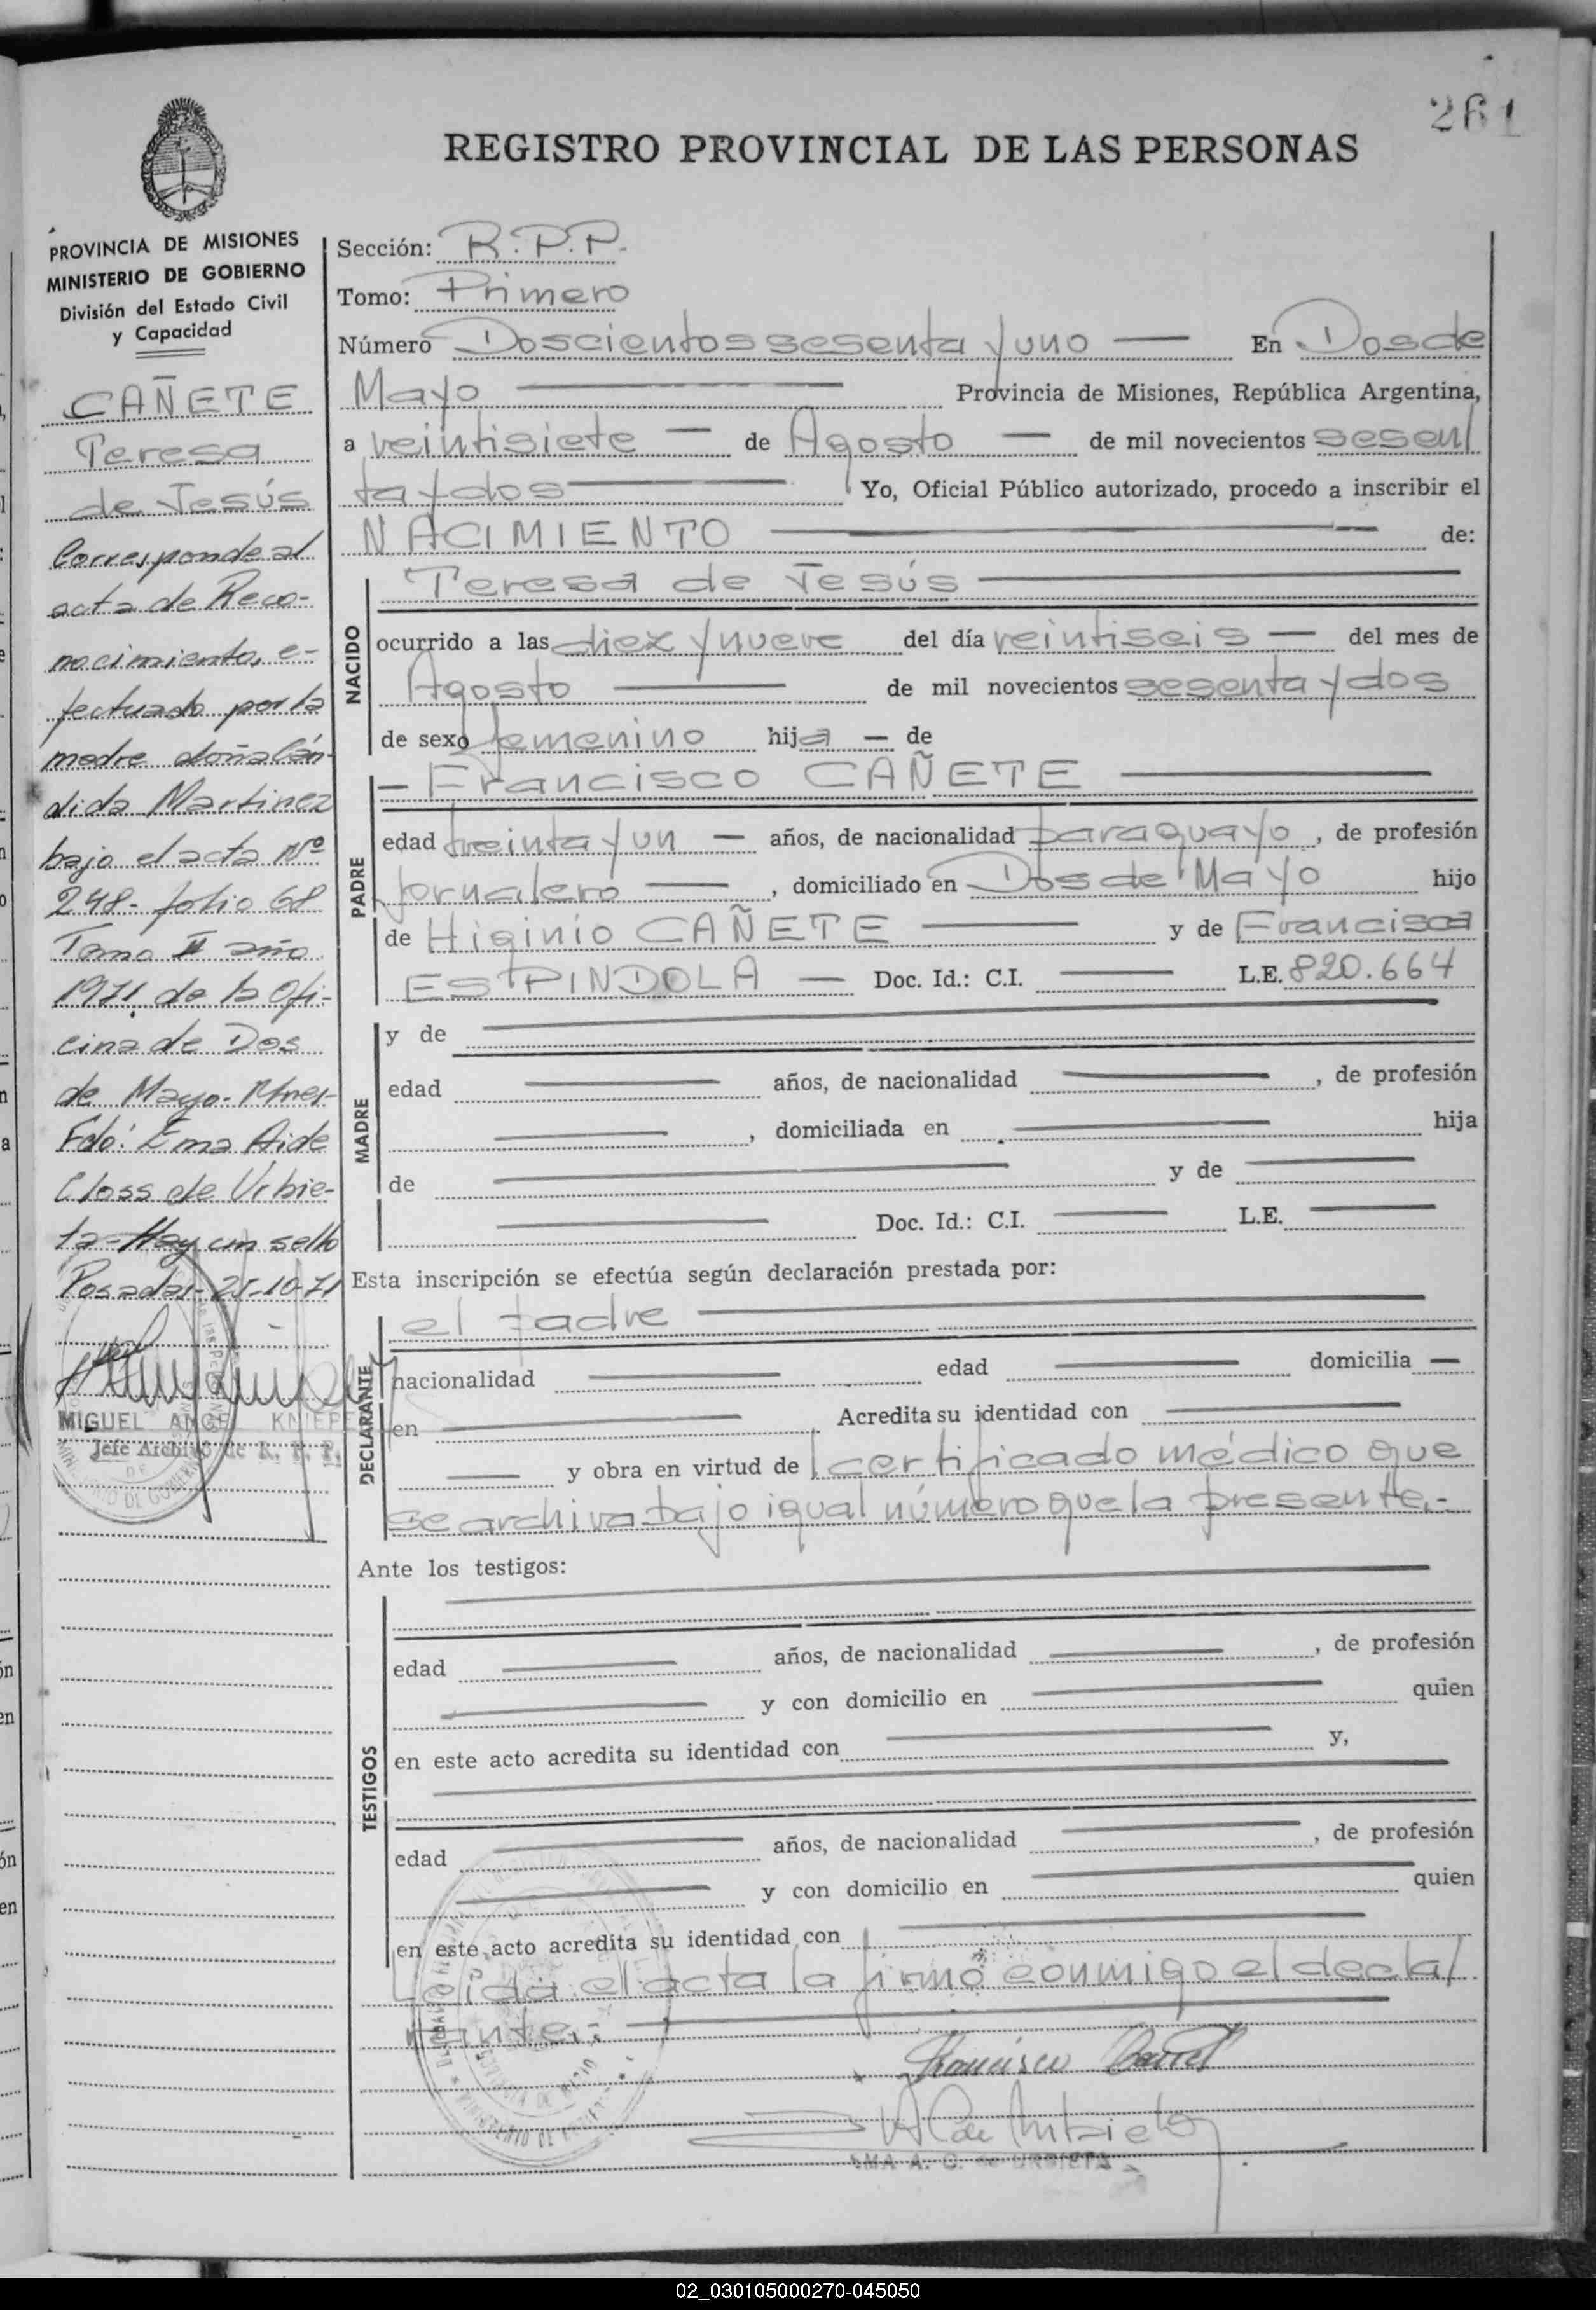 261
REGISTRO PROVINCIAL DE LAS PERSONAS
PROVINCIA DE MISIONES
MINISTERIO DE GOBIERNO
División del Estado Civil
y Capacidad
CAÑETE
Teresa
de Jesús
Corresponde al
acta de Reco-
nocimiento, e-
fectuado por la
madre doña Cán-
dida Martinez
bajo el acta Nº
248- folio 68
Tomo II año
1971 de la Ofi-
cina de Dos
de Mayo- Mnes-
Fdo: Ema Aide
Closs de Urbie-
ta- Hay un sello
Posadas- 25-10-71
MIGUEL ANGEL KNIEPE
Jefe Archivo de R. P. P.
Sección: R.P.P.
Tomo: Primero
Número Doscientos sesenta y uno — En Dos de
Mayo — Provincia de Misiones, República Argentina,
a veintisiete — de Agosto — de mil novecientos sesen/
ta y dos — Yo, Oficial Público autorizado, procedo a inscribir el
NACIMIENTO — de:
NACIDO
Teresa de Jesús —
ocurrido a las diez y nueve del día veintiseis — del mes de
Agosto — de mil novecientos sesenta y dos
de sexo femenino hija — de
PADRE
— Francisco CAÑETE —
edad treinta y un — años, de nacionalidad paraguayo, de profesión
jornalero —, domiciliado en Dos de Mayo hijo
de Higinio CAÑETE — y de Francisca
ESPINDOLA — Doc. Id.: C.I. — L.E. 820.664
MADRE
y de —
edad — años, de nacionalidad —, de profesión
—, domiciliada en — hija
de — y de —
— Doc. Id.: C.I. — L.E. —
Esta inscripción se efectúa según declaración prestada por:
DECLARANTE
el padre —
nacionalidad — edad — domicilia —
en — Acredita su identidad con —
— y obra en virtud de certificado médico que
se archiva bajo igual número que la presente.-
Ante los testigos:
TESTIGOS
edad — años, de nacionalidad —, de profesión
— y con domicilio en — quien
en este acto acredita su identidad con — y,
edad — años, de nacionalidad —, de profesión
— y con domicilio en — quien
en este acto acredita su identidad con —
Leida el acta la firmó conmigo el decla/
rante.- —
Francisco Cañete
A C de Urbieta
EMA A. C. de URBIETA
02_030105000270-045050